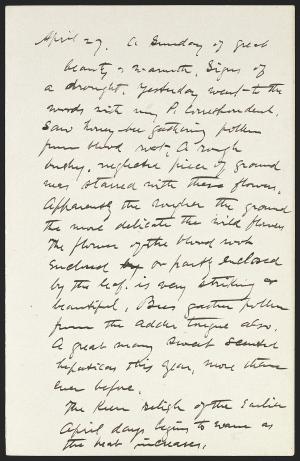 April 27. A Sunday of great
beauty & warmth. Signs of
a drought. Yesterday went to the
woods with my P. correspondent.
Saw honey-bee gathering pollen
from blood root. A rough
bushy, neglected piece of ground
was starred with these flowers.
Apparently the rougher the ground
the more delicate the wild flowers
The flower of the blood root
enclosed by or partly enclosed
by the leaf is very striking &
beautiful. Bees gather pollen
from the adder tongue also.
A great many sweet scented
hepaticas this year, more than
ever before.
The keen delight of the earlier
April days begins to wane as
the heat increases.